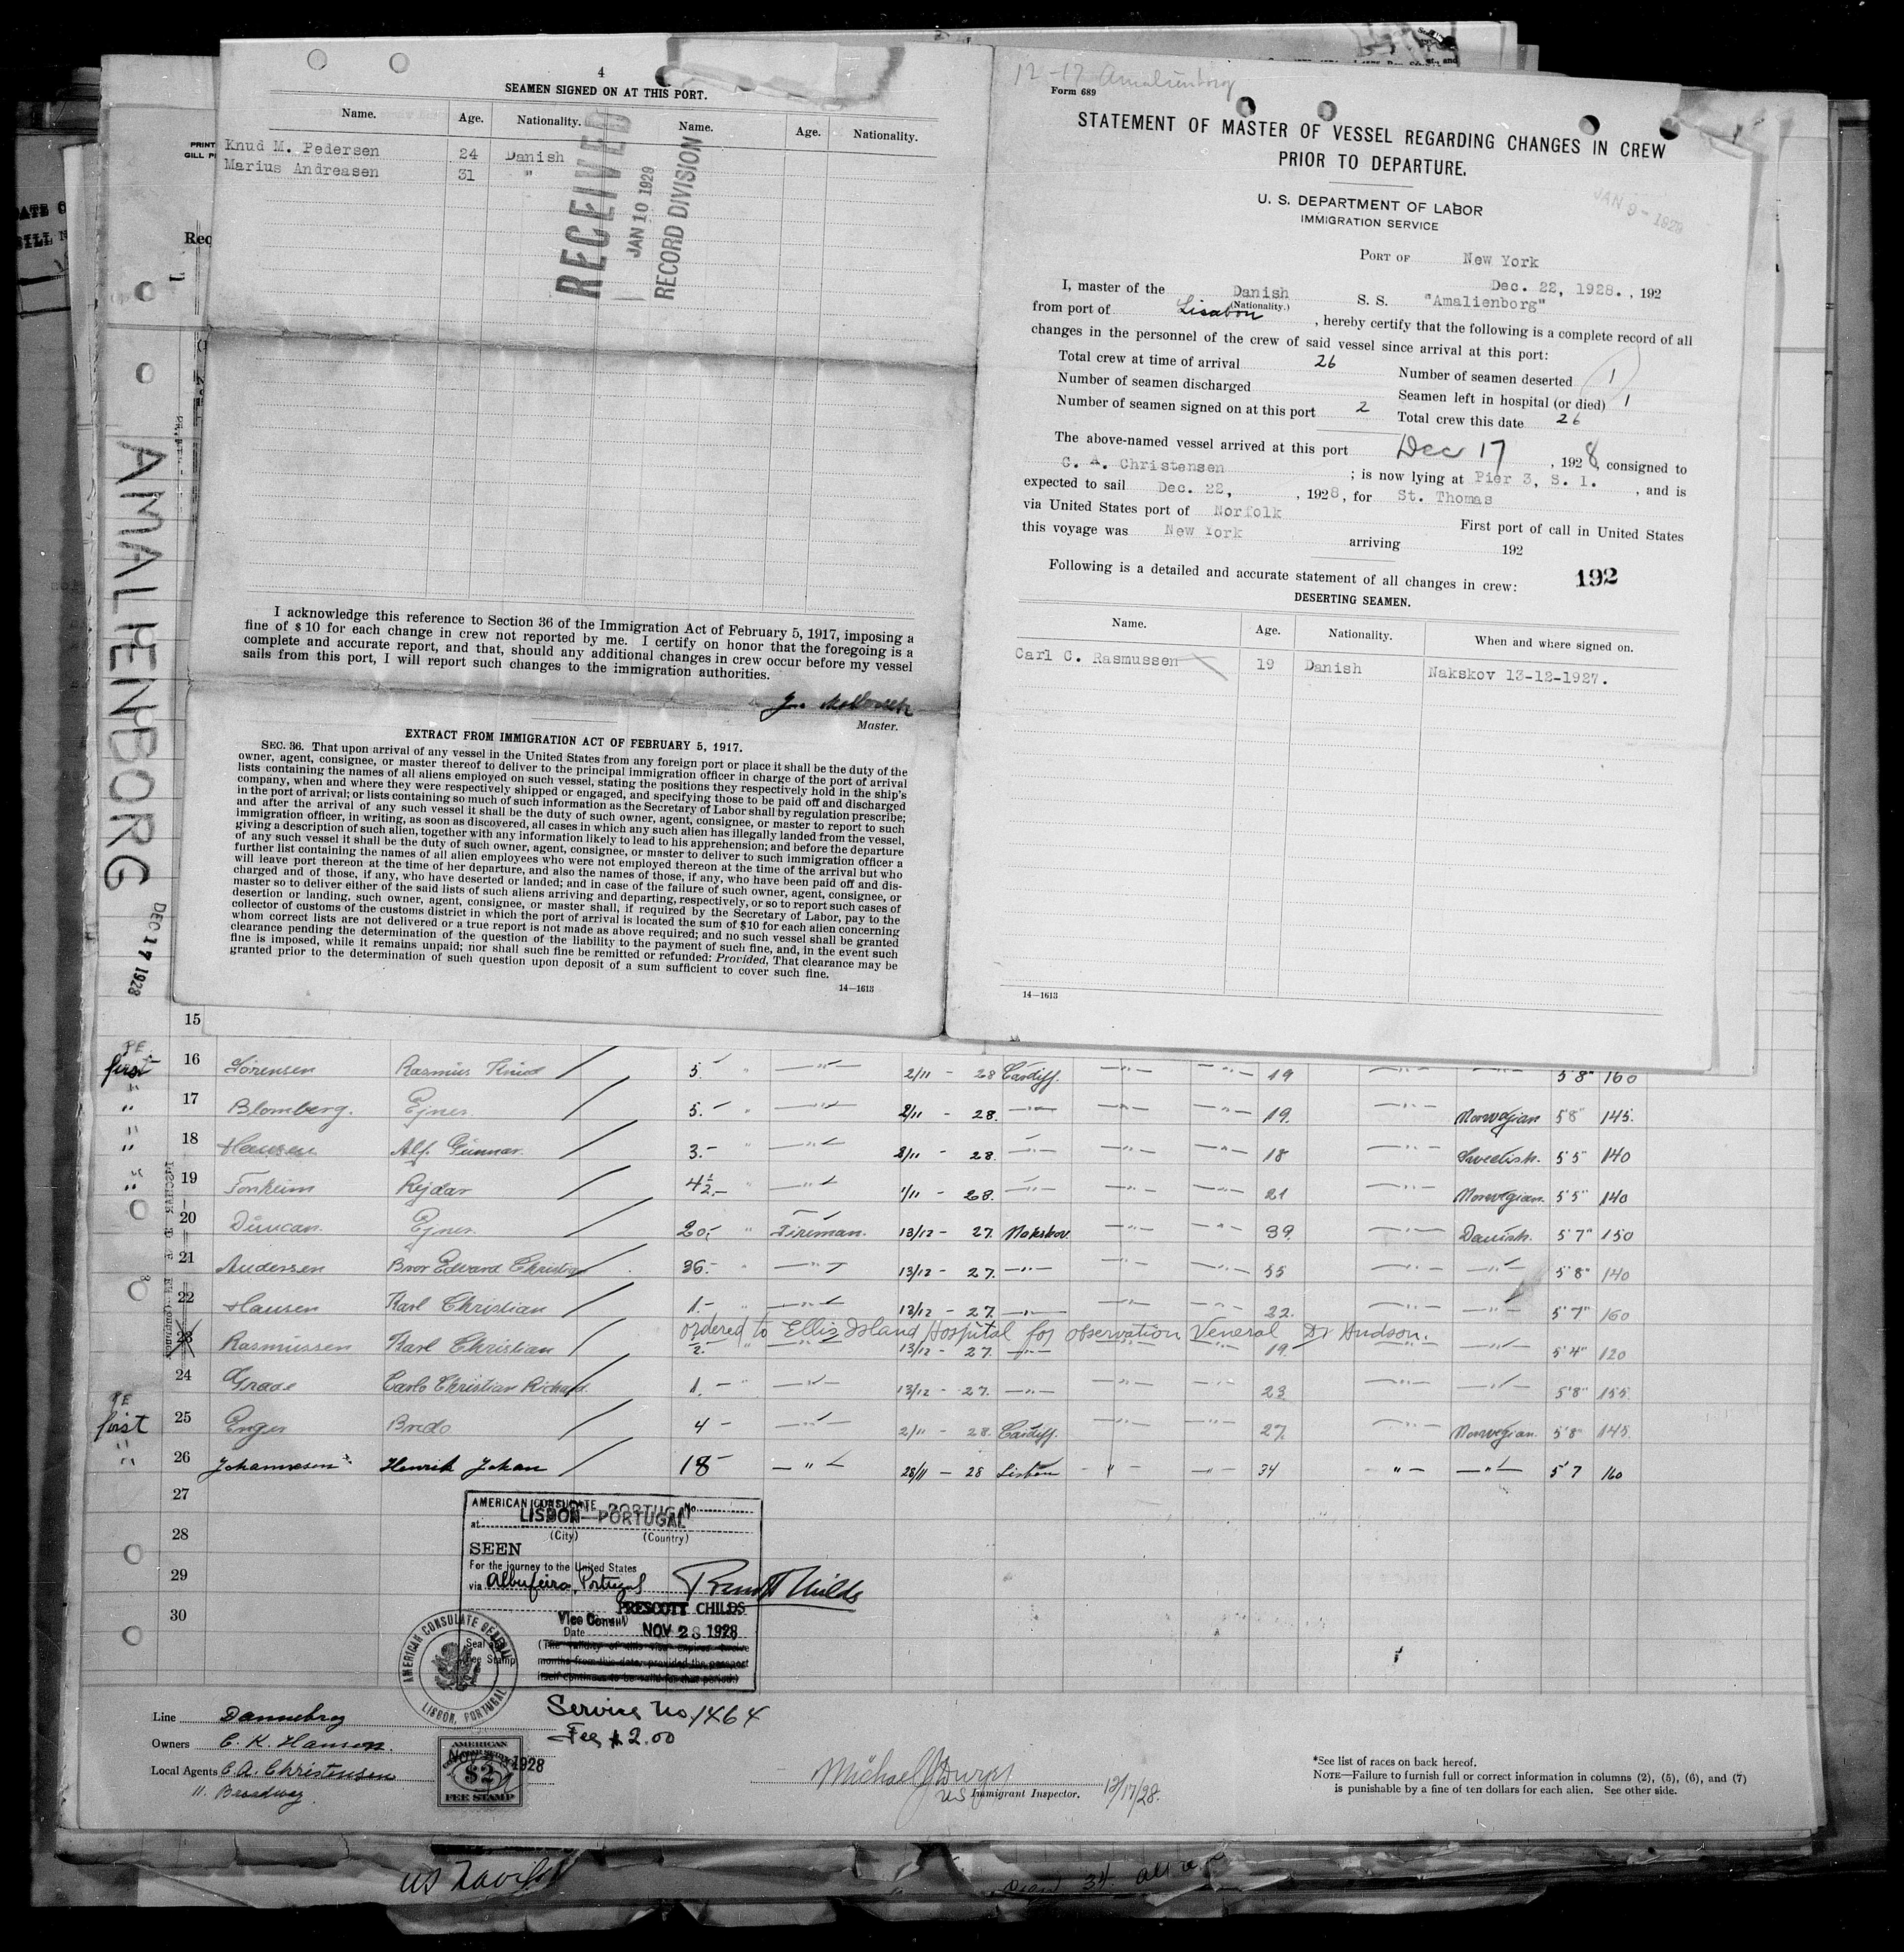 4
SEAMEN SIGNED ON AT THIS PORT.
Name. Age. Nationality. Name. Age. Nationality.
Knud M. Pedersen 24 Danish
Marius Andreasen 31 "
RECEIVED
JAN 10 1929
RECORD DIVISION
I acknowledge this reference to Section 36 of the Immigration Act of February 5, 1917, imposing a
fine of $10 for each change in crew not reported by me. I certify on honor that the foregoing is a
complete and accurate report, and that, should any additional changes in crew occur before my vessel
sails from this port, I will report such changes to the immigration authorities.
Master.
EXTRACT FROM IMMIGRATION ACT OF FEBRUARY 5, 1917.
SEC. 36. That upon arrival of any vessel in the United States from any foreign port or place it shall be the duty of the
owner, agent, consignee, or master thereof to deliver to the principal immigration officer in charge of the port of arrival
lists containing the names of all aliens employed on such vessel, stating the positions they respectively hold in the ship's
company, when and where they were respectively shipped or engaged, and specifying those to be paid off and discharged
in the port of arrival; or lists containing so much of such information as the Secretary of Labor shall by regulation prescribe;
and after the arrival of any such vessel it shall be the duty of such owner, agent, consignee, or master to report to such
immigration officer, in writing, as soon as discovered, all cases in which any such alien has illegally landed from the vessel,
giving a description of such alien, together with any information likely to lead to his apprehension; and before the departure
of any such vessel it shall be the duty of such owner, agent, consignee, or master to deliver to such immigration officer a
further list containing the names of all alien employees who were not employed thereon at the time of the arrival but who
will leave port thereon at the time of her departure, and also the names of those, if any, who have been paid off and dis-
charged and of those, if any, who have deserted or landed; and in case of the failure of such owner, agent, consignee, or
master so to deliver either of the said lists of such aliens arriving and departing, respectively, or so to report such cases of
desertion or landing, such owner, agent, consignee, or master shall, if required by the Secretary of Labor, pay to the
collector of customs of the customs district in which the port of arrival is located the sum of $10 for each alien concerning
whom correct lists are not delivered or a true report is not made as above required; and no such vessel shall be granted
clearance pending the determination of the question of the liability to the payment of such fine, and, in the event such
fine is imposed, while it remains unpaid; nor shall such fine be remitted or refunded: Provided, That clearance may be
granted prior to the determination of such question upon deposit of a sum sufficient to cover such fine.
14—1613
12-17 Amalienborg
Form 689
STATEMENT OF MASTER OF VESSEL REGARDING CHANGES IN CREW
PRIOR TO DEPARTURE.
U. S. DEPARTMENT OF LABOR
IMMIGRATION SERVICE
JAN 9 - 1929
PORT OF New York
Dec. 22, 1928. , 192
I, master of the Danish S. S. "Amalienborg"
(Nationality.)
from port of Lisabon , hereby certify that the following is a complete record of all
changes in the personnel of the crew of said vessel since arrival at this port:
Total crew at time of arrival 26 Number of seamen deserted 1
Number of seamen discharged Seamen left in hospital (or died) 1
Number of seamen signed on at this port 2 Total crew this date 26
The above-named vessel arrived at this port Dec 17 , 1928, consigned to
C. A. Christensen ; is now lying at Pier 3, S. I. , and is
expected to sail Dec. 22, , 1928, for St. Thomas
via United States port of Norfolk First port of call in United States
this voyage was New York arriving 192
Following is a detailed and accurate statement of all changes in crew: 192
DESERTING SEAMEN.
Name. Age. Nationality. When and where signed on.
Carl C. Rasmussen 19 Danish Nakskov 13-12-1927.
14—1613
AMALIENBORG
DEC 17 1928
15
PE
first 16 Sörensen Rasmus Knud 5 " 2/11 - 28 Cardiff. 19 5'8" 160
" 17 Blomberg. Ejner. 5.- " 2/11 - 28. 19. Norwegian 5'8" 145.
" 18 Hansen Alf. Gunnar. 3.- " 2/11 - 28. 18 Swedish. 5'5" 140
" 19 Tonheim Rejdar 4½.- " 1/11 - 28. 21 Norwegian. 5'5" 140
20 Duncan. Ejner. 20.- " Fireman. 13/12 - 27. Nakskov. 39. Danish. 5'7" 150
21 Andersen Bror Edvard Christian 36.- " 13/12 - 27. 55 5'8" 140
22 Hansen Karl Christian 1.- " 13/12 - 27. 22. 5'7" 160
ordered to Ellis Island Hospital for observation Veneral Dr Hudson.
23 Rasmussen Karl Christian 2. " 13/12 - 27. 19. 5'4" 120
24 Graae Carlo Christian Richard. 1.- " 13/12 - 27. 23 5'8" 155.
PE
first 25 Enger Bredo 4 - 2/11 - 28. Cardiff. 27. Norwegian. 5'8" 145.
" 26 Johannesen Henrik Johan 18 - " 28/11 - 28 Lisbon " 34 " " 5'7 160
27
28
29
30
AMERICAN CONSULATE No.
at LISBON—PORTUGAL
(City) (Country)
SEEN
For the journey to the United States
via Albufeira, Portugal
PRESCOTT CHILDS
Vice Consul
Date NOV 28 1928
(The validity of this visa expires twelve
months from this date, provided the passport
itself continues to be valid for that period.)
Seal
Fee Stamp
AMERICAN CONSULATE GENERAL
LISBON, PORTUGAL
Service No 1464
Fee $2.00
Line Dannebrog
Owners C. K. Hansen.
Local Agents C. A. Christensen
11. Broadway.
AMERICAN
$2
FEE STAMP
1928
US Immigrant Inspector. 12/17/28.
*See list of races on back hereof.
NOTE—Failure to furnish full or correct information in columns (2), (5), (6), and (7)
is punishable by a fine of ten dollars for each alien. See other side.